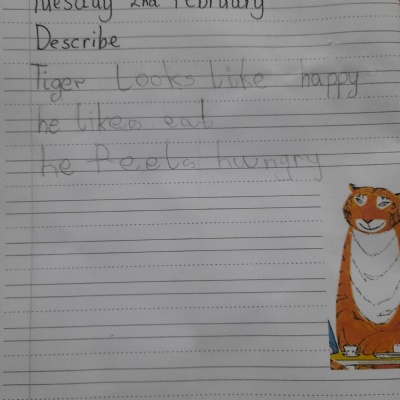 Tuesday 2nd February
Describe
Tiger Looks like happy
he likes eat
he feels hungry